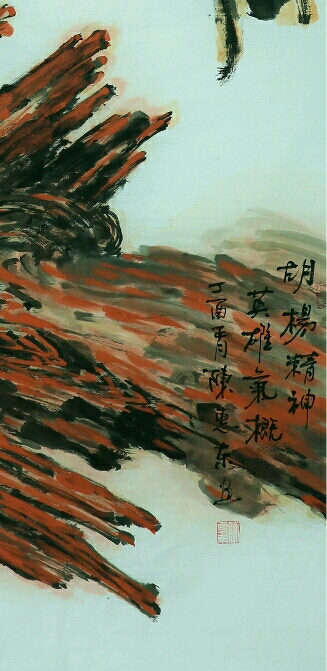 胡楊精神
英雄氣概
丁酉陳惠东画